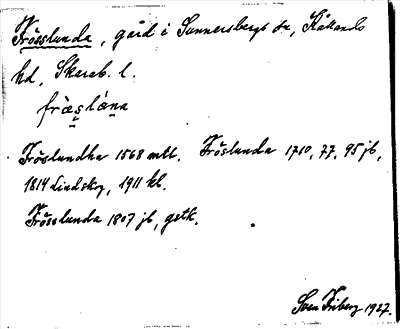 Frösslunda, gård i Sunnersbergs sn, Kållands
hd, Skarab. l.
frə̀s̠lànα
Fröslundha 1568 mtl. Fröslunda 1710, 77, 95 jb,
1814 Lindskog, 1911 kb.
Frösslunda 1807 jb, gstk.
Sven Friberg 1927.